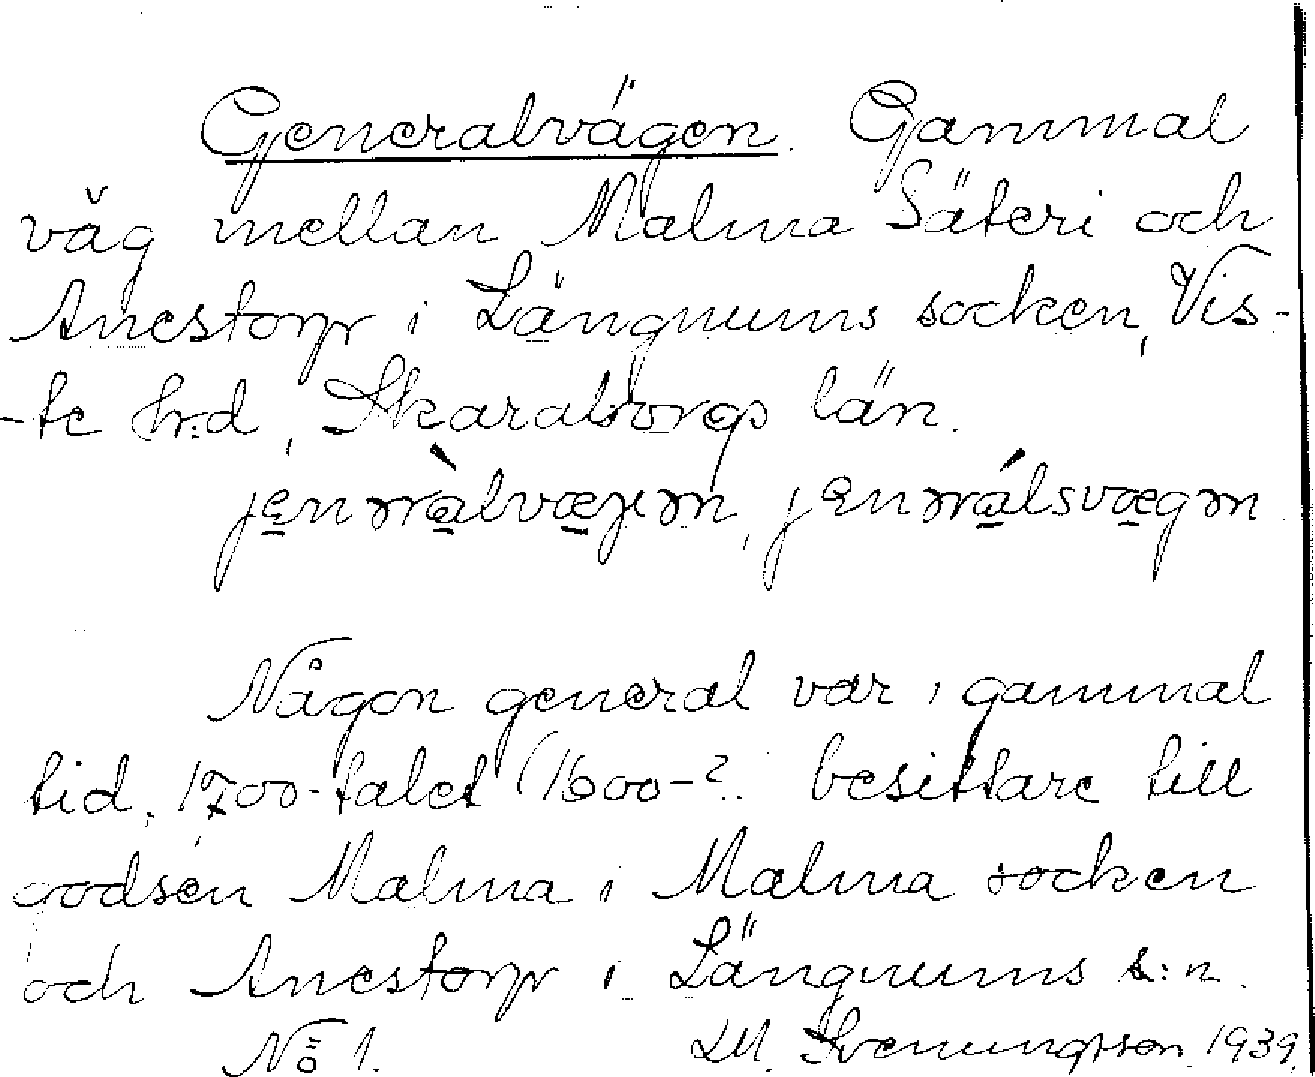 Generalvägen. Gammal
väg mellan Malma Säteri och
Anestorp i Längnums socken, Vis-
-te h:d, Skaraborgs län.
Någon general var i gammal
tid, 1700-talet (1600-?. besittare till
godsen Malma i Malma socken
och Anestorp i Längnums s:n.
No 1. Svenungsson 1939.